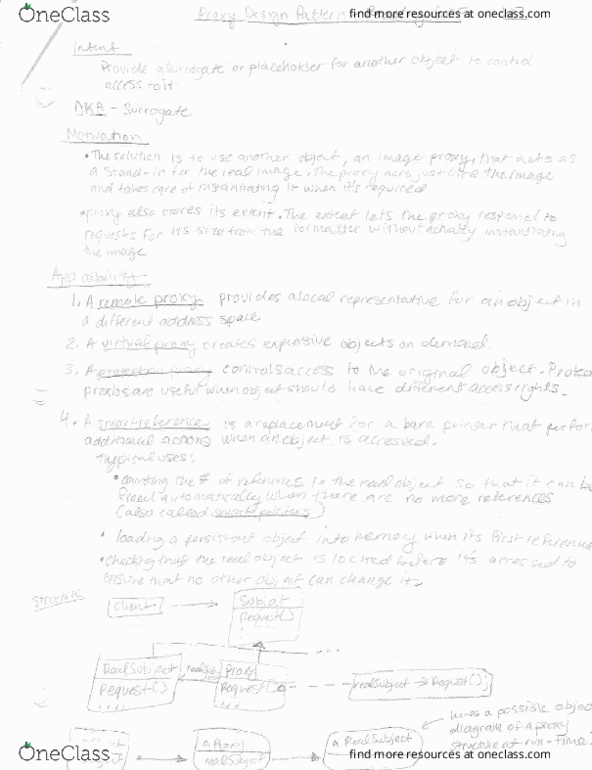 OneClass
find more resources at oneclass.com
Proxy Design Pattern
Intent
Provide a surrogate or placeholder for another object to control
access to it
AKA - Surrogate
Motivation
• The solution is to use another object, an image proxy, that acts as
a stand-in for the real image. The proxy acts just like the image
and takes care of instantiating it when it's required
• proxy also stores its extent. The extent lets the proxy respond to
requests for its size from the formatter without actually instantiating
the image.
1. A remote proxy provides a local representative for an object in
a different address space
2. A virtual proxy creates expensive objects on demand
3. A protection proxy controls access to the original object. Protec
proxies are useful when object should have different access rights.
4. A smart reference is a replacement for a bare pointer that perfor
additional actions when an object is accessed.
Typical uses:
• counting the # of references to the real object so that it can be
freed automatically when there are no more references
(also called smart pointers)
• loading a persistent object into memory when its first reference
• checking that the real object is locked before it's accessed to
ensure that no other object can change it.
Structure
Client
Subject
Request()
...
RealSubject
realSubj
Proxy
Request()
Request()
realSubject → Request();
....
a possible objec
diagram of a proxy
structure at run-time.
aProxy
realSubject
a RealSubject
OneClass
find more resources at oneclass.com